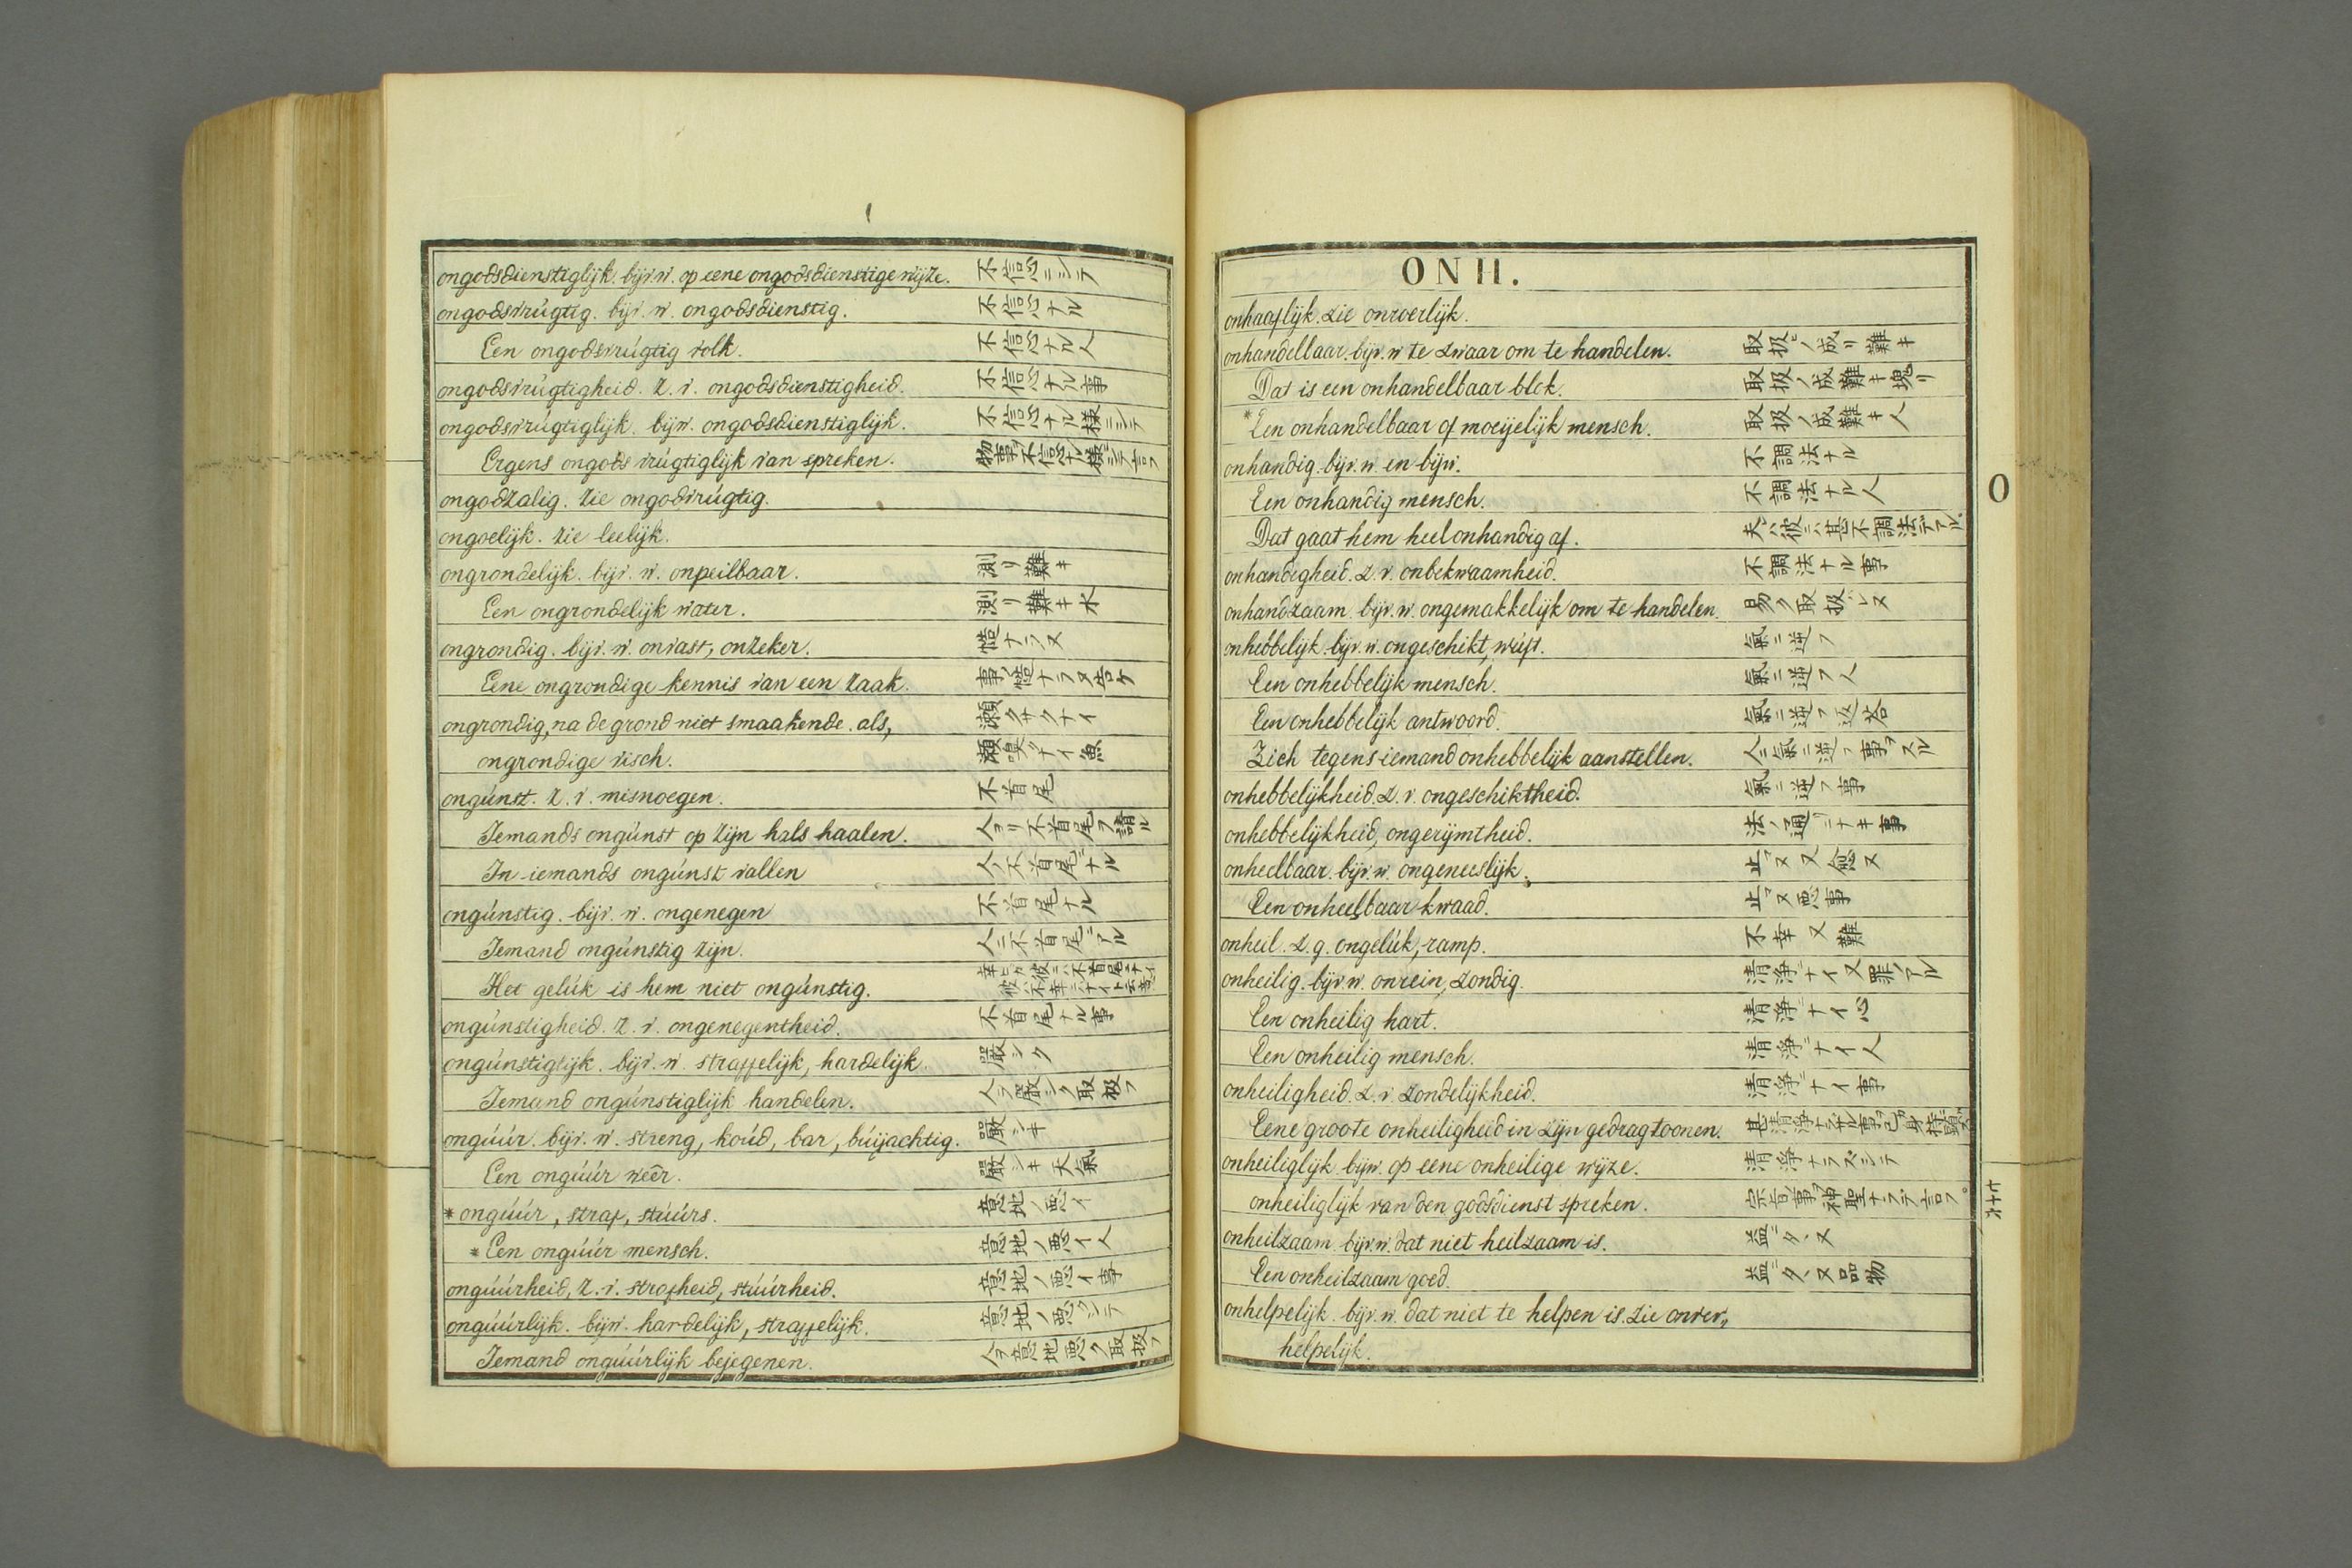 ongodsdienstiglijk. bijv.w. op eene ongodsdienstige wijze. 不信心ニシテ
ongodsvrúgtig. bijv. w. ongodsdienstig. 不信心ナル
Een ongodsvrúgtig volk. 不信心ナル人
ongodsvrúgtigheid. z. v. ongodsdienstigheid. 不信心ナル事
ongodsvrúgtiglijk. bijw. ongodsdienstiglijk. 不信心ナル様ニシテ
Ergens ongods vrúgtiglijk van spreken. 物事ヲ不信心ナル様ニシテ言フ
ongodzalig. zie ongodvrúgtig.
ongoelijk. zie leelijk.
ongrondelijk. bijv. w. onpeilbaar. 測リ難キ
Een ongrondelijk water. 測リ難キ水
ongrondig. bijv. w. onvast, onzeker. 慥ナラヌ
Eene ongrondige kennis van een zaak. 事ノ慥ナラヌ告ケ
ongrondig, na de grond niet smaakende. als, 瀬クサクナイ
ongrondige visch. 瀬臭クナイ魚
ongúnst. z. v. misnoegen. 不首尾
Iemands ongúnst op zijn hals haalen. 人ヨリ不首尾ヲ請ル
In iemands ongúnst vallen 人ノ不首尾ニナル
ongúnstig. bijv. w. ongenegen 不首尾ナル
Iemand ongúnstig zijn. 人ニ不首尾デアル
Het gelúk is hem niet ongúnstig.
ongúnstigheid. z. v. ongenegentheid. 不首尾ナル事
ongúnstiglijk. bijv. w. straffelijk, hardelijk. 嚴シク
Iemand ongúnstiglijk handelen. 人ヲ嚴シク取扱フ
ongúúr. bijv. w. streng, koúd, bar, búijachtig. 嚴シキ
Een ongúúr weêr. 嚴シキ天氣
* ongúúr, straf, stúúrs. 意地ノ悪イ
* Een ongúúr mensch. 意地ノ悪イ人
ongúúrheid, z. v. strafheid, stúúrheid. 意地ノ悪イ事
ongúúrlijk. bijw. hardelijk, straffelijk. 意地ノ悪クシテ
Iemand ongúúrlijk bejegenen. 人ヲ意地悪ク取扱フ
ONH.
onhaaflijk. zie onroerlijk.
onhandelbaar. bijv. w te zwaar om te handelen. 取扱ヒノ成リ難キ
Dat is een onhandelbaar blok. 取扱ノ成難キ塊リ
* Een onhandelbaar of moeijelijk mensch. 取扱ノ成難キ人
onhandig. bijv. w. en bijw. 不調法ナル
Een onhandig mensch. 不調法ナル人
Dat gaat hem heel onhandig af. 夫ハ彼ニハ甚不調法デアル
onhandigheid. z. v. onbekwaamheid. 不調法ナル事
onhandzaam. bijv. w. ongemakkelijk om te handelen. 易ク取扱ハレヌ
onhebbelijk. bijv. w. ongeschikt, wúft. 氣ニ逆フ
Een onhebbelijk mensch. 氣ニ逆フ人
Een onhebbelijk antwoord. 氣ニ逆フ返荅
Zich tegens iemand onhebbelijk aanstellen. 人ニ氣ニ逆フ事ヲスル
onhebbelijkheid. z. v. ongeschiktheid. 氣ニ逆フ事
onhebbelijkheid, ongerijmtheid. 法ノ通リニナキ事
onheelbaar. bijv. w. ongeneeslijk. 止マヌ又愈ヌ
Een onheelbaar kwaad. 止マヌ悪事
onheil. z. g. ongelúk, ramp. 不幸又難
onheilig. bijv. w. onrein, zondig. 清浄デナイ又罪ノアル
Een onheilig hart. 清浄デナイ心
Een onheilig mensch. 清浄デナイ人
onheiligheid. z. v. zondelijkheid. 清浄デナイ事
Eene groote onheiligheid in zijn gedrag toonen.
onheiliglijk. bijw. op eene onheilige wijze. 清浄ナラズシテ
onheiliglijk van den godsdienst spreken.
onheilzaam. bijv. w. dat niet heilzaam is. 益ニタヽヌ
Een onheilzaam goed. 益ニタヽヌ品物
onhelpelijk. bijv. w. dat niet te helpen is. zie onver„
helpelijk.
O